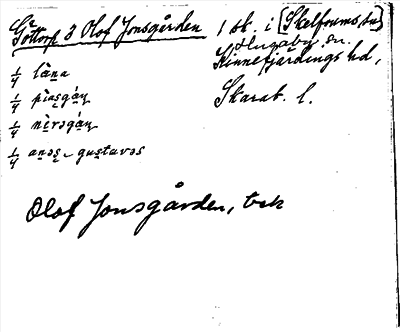 Göttorp 3 Olof Jonsgården
1 sk. i [Skelfvums sn]
Husaby sn.
Kinnefjärdings hd,
Skarab. l.
1/4 làna
1/4 pìasgáṇ
1/4 nèrəgáṇ
1/4 anəs - gustavəs
Olof Jonsgården, tck